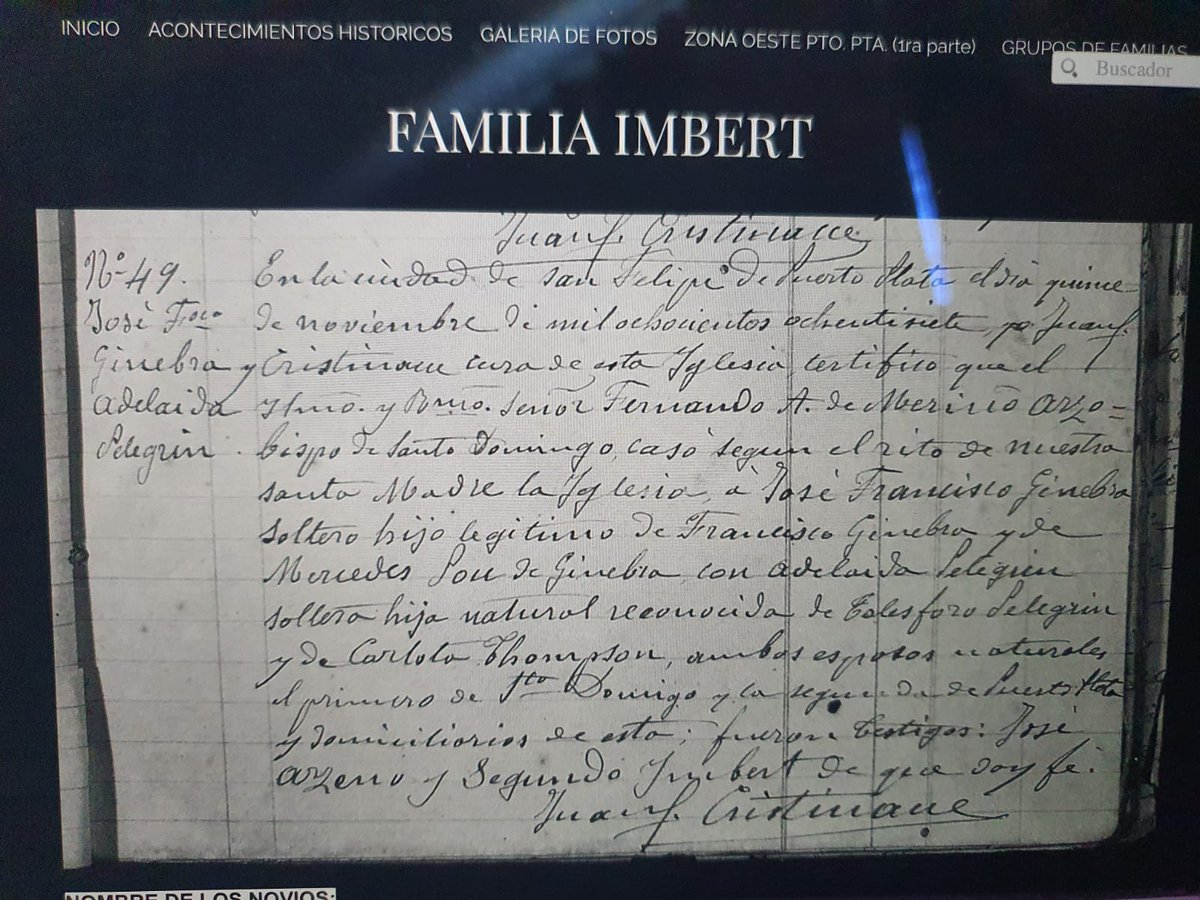 INICIO ACONTECIMIENTOS HISTORICOS GALERIA DE FOTOS ZONA OESTE PTO. PTA. (1ra parte) GRUPOS DE FAMILIAS
Buscador
FAMILIA IMBERT
Juan f. Cristinacce
Nº 49.
José Fcco
Ginebra y
Adelaida
Pelegrin.
En la ciudad de San Felipe de Puerto Plata el dia quince
de noviembre de mil ochocientos ochentisiete, yo Juan f.
Cristinacce cura de esta Iglesia certifico que el
Iltmo. y Rmo. Señor Fernando A. de Meriño Arzo=
bispo de Santo Domingo, casó segun el rito de nuestra
santa Madre la Iglesia, à José Francisco Ginebra
soltero hijo legitimo de Francisco Ginebra y de
Mercedes Pou de Ginebra, con Adelaida Pelegrin
soltera hija natural reconocida de Telesforo Pelegrin
y de Carlota Thompson, ambos esposos naturales
el primero de Sto Domingo y la segunda de Puerto Plata
y domiciliarios de esta; fueron testigos: José
Arzeno y Segundo Imbert de que doy fé.
Juan f. Cristinacce
NOMBRE DE LOS NOVIOS: